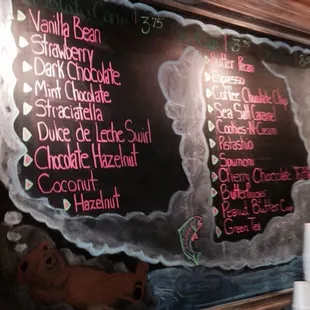 3.75
Vanilla Bean
Strawberry
Dark Chocolate
Mint Chocolate
Straciatella
Dulce de Leche Swirl
Chocolate Hazelnut
Coconut
Hazelnut
Butter Pecan
Espresso
Coffee Chocolate Chip
Sea Salt Caramel
Cookies + Cream
Pistachio
Spumoni
Cherry Chocolate
Butterfinger
Peanut Butter Cup
Green Tea